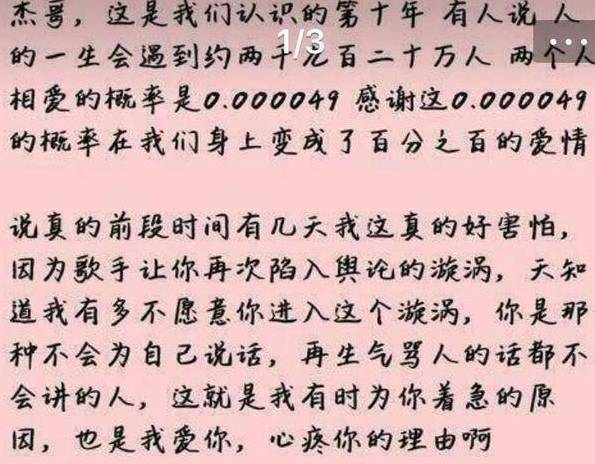 杰哥，这是我们认识的第十年 有人说 人
1/3
的一生会遇到约两千九百二十万人 两个人
相爱的概率是0.000049 感谢这0.000049
的概率在我们身上变成了百分之百的爱情
说真的前段时间有几天我这真的好害怕，
因为歌手让你再次陷入舆论的漩涡，天知
道我有多不愿意你进入这个漩涡，你是那
种不会为自己说话，再生气骂人的话都不
会讲的人，这就是我有时为你着急的原
因，也是我爱你，心疼你的理由啊